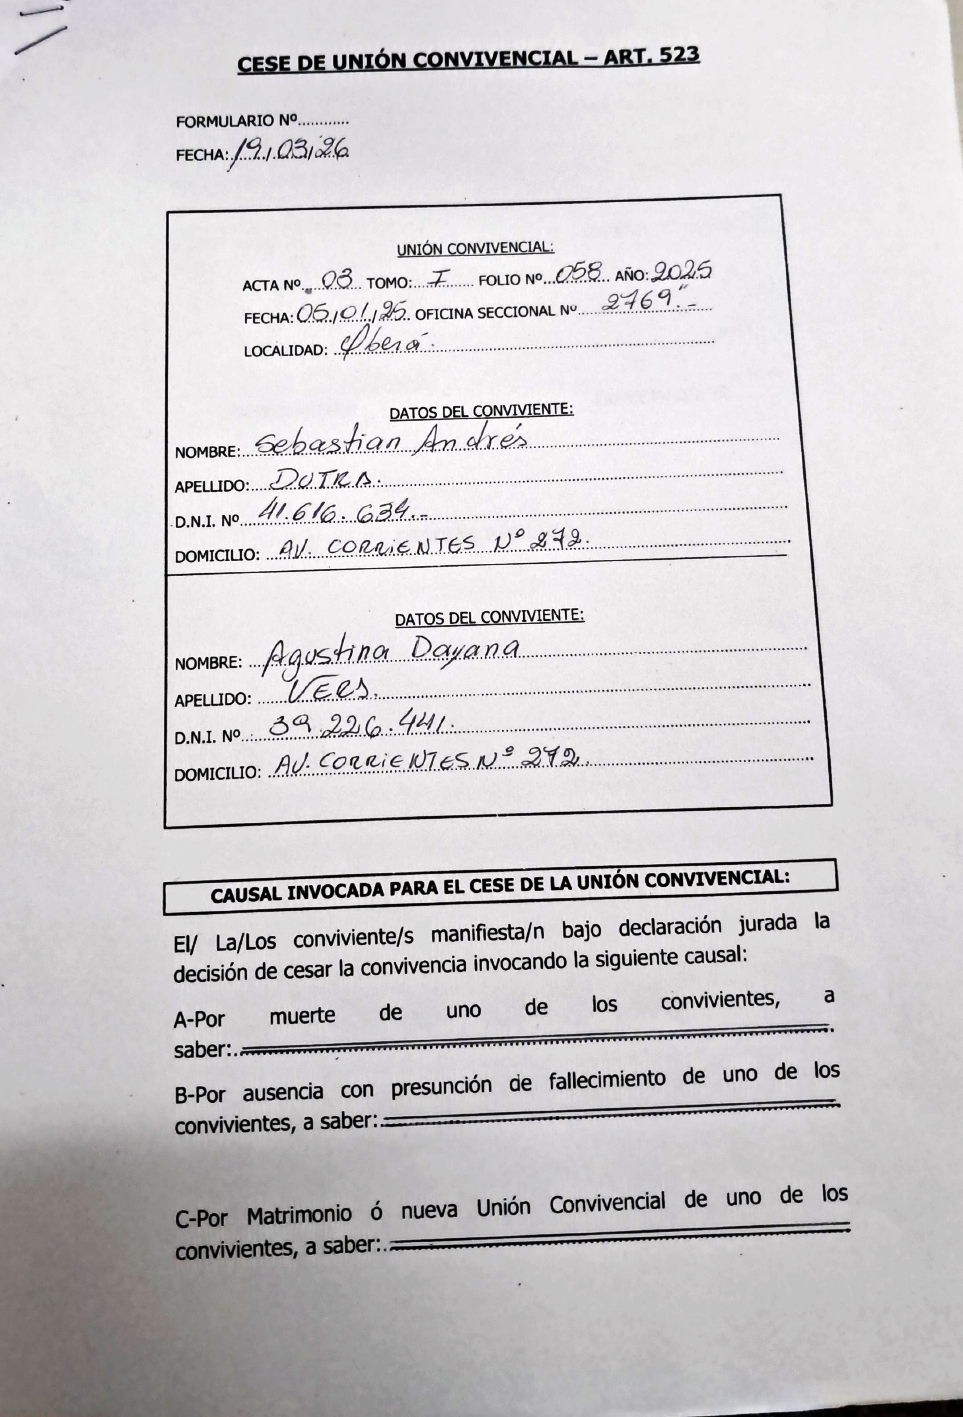 CESE DE UNIÓN CONVIVENCIAL – ART. 523
FORMULARIO Nº............
FECHA: 19/03/26
UNIÓN CONVIVENCIAL:
ACTA Nº 03 TOMO: I FOLIO Nº 058 AÑO: 2025
FECHA: 05/01/25 OFICINA SECCIONAL Nº 2769"-
LOCALIDAD: Oberá.
DATOS DEL CONVIVIENTE:
NOMBRE: Sebastian Andrés
APELLIDO: DUTRA.
D.N.I. Nº 41.616.634.-
DOMICILIO: AV. CORRIENTES Nº 272.
DATOS DEL CONVIVIENTE:
NOMBRE: Agustina Dayana
APELLIDO: VERS.
D.N.I. Nº 39.226.441.
DOMICILIO: AV. CORRIENTES Nº 272.
CAUSAL INVOCADA PARA EL CESE DE LA UNIÓN CONVIVENCIAL:
El/ La/Los conviviente/s manifiesta/n bajo declaración jurada la
decisión de cesar la convivencia invocando la siguiente causal:
A-Por muerte de uno de los convivientes, a
saber:
B-Por ausencia con presunción de fallecimiento de uno de los
convivientes, a saber:
C-Por Matrimonio ó nueva Unión Convivencial de uno de los
convivientes, a saber: